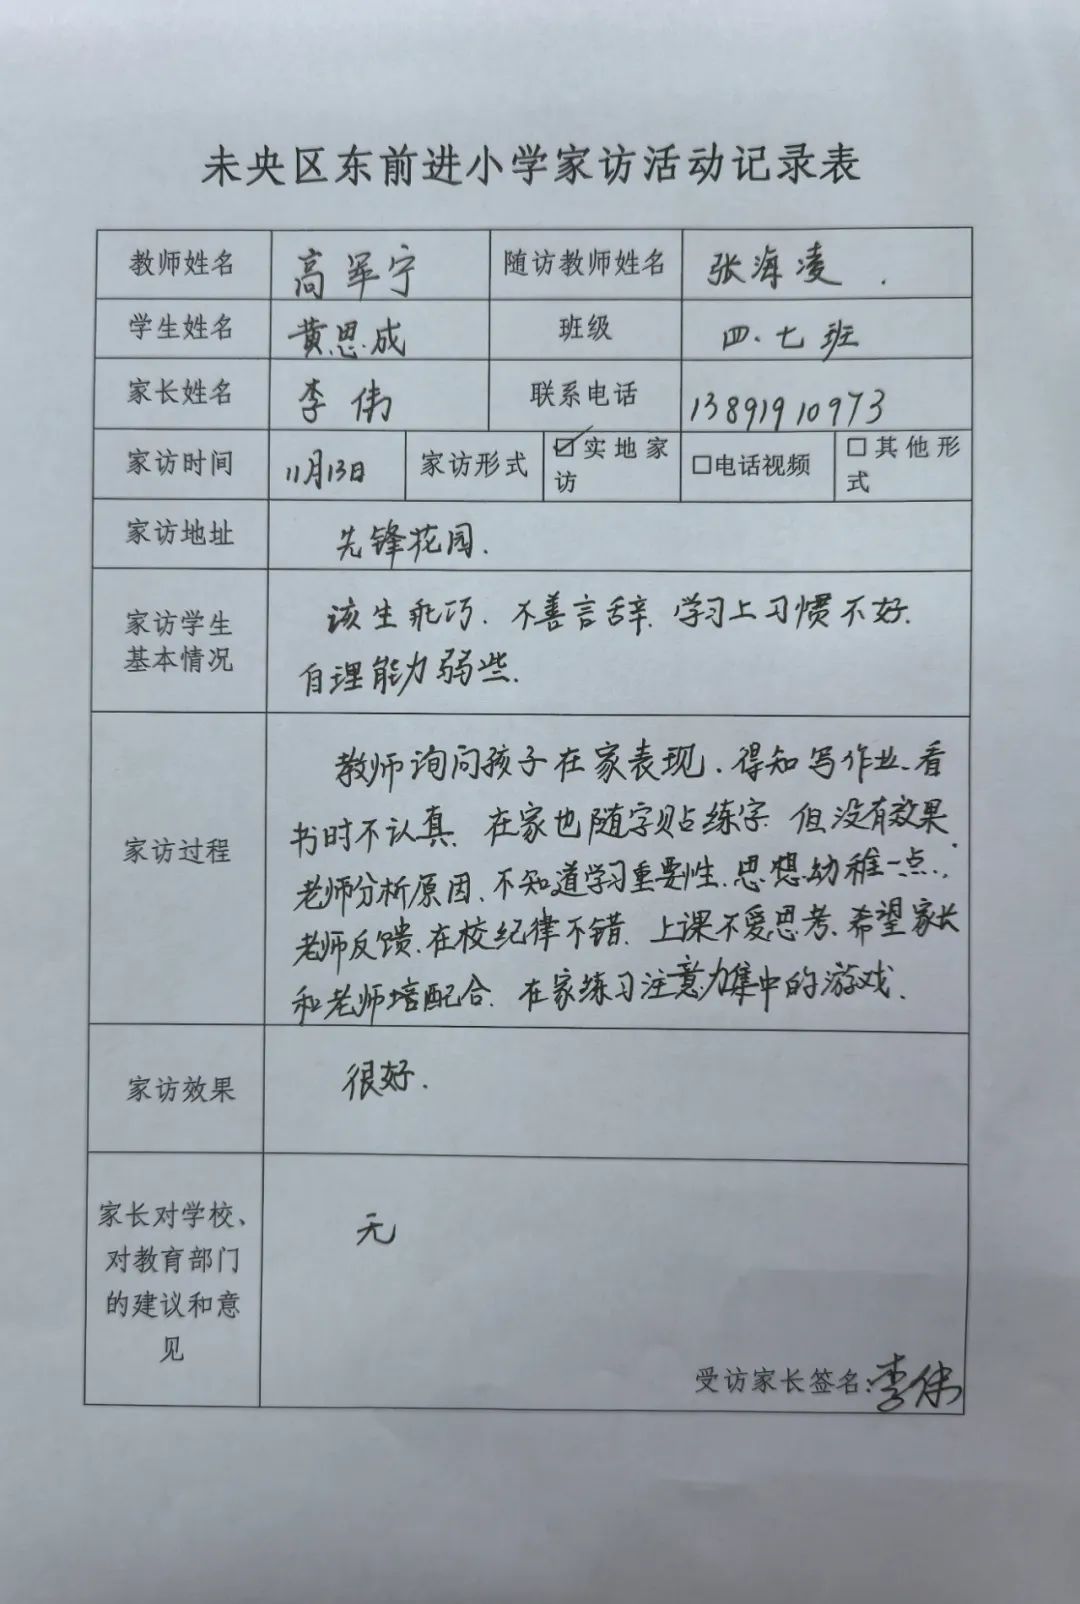 未央区东前进小学家访活动记录表
教师姓名 高军宁 随访教师姓名 张海凌.
学生姓名 黄思成 班级 四.七班
家长姓名 李伟 联系电话 13891910973
家访时间 11月13日 家访形式 ☑实地家访 □电话视频 □其他形式
家访地址 先锋花园.
家访学生基本情况
该生乖巧.不善言辞.学习上习惯不好.
自理能力弱些.
家访过程
教师询问孩子在家表现.得知写作业、看
书时不认真.在家也随字贴练字.但没有效果.
老师分析原因、不知道学习重要性、思想幼稚一点.
老师反馈.在校纪律不错.上课不爱思考.希望家长
和老师培配合.在家练习注意力集中的游戏.
家访效果 很好.
家长对学校、
对教育部门
的建议和意
见
无
受访家长签名:李伟